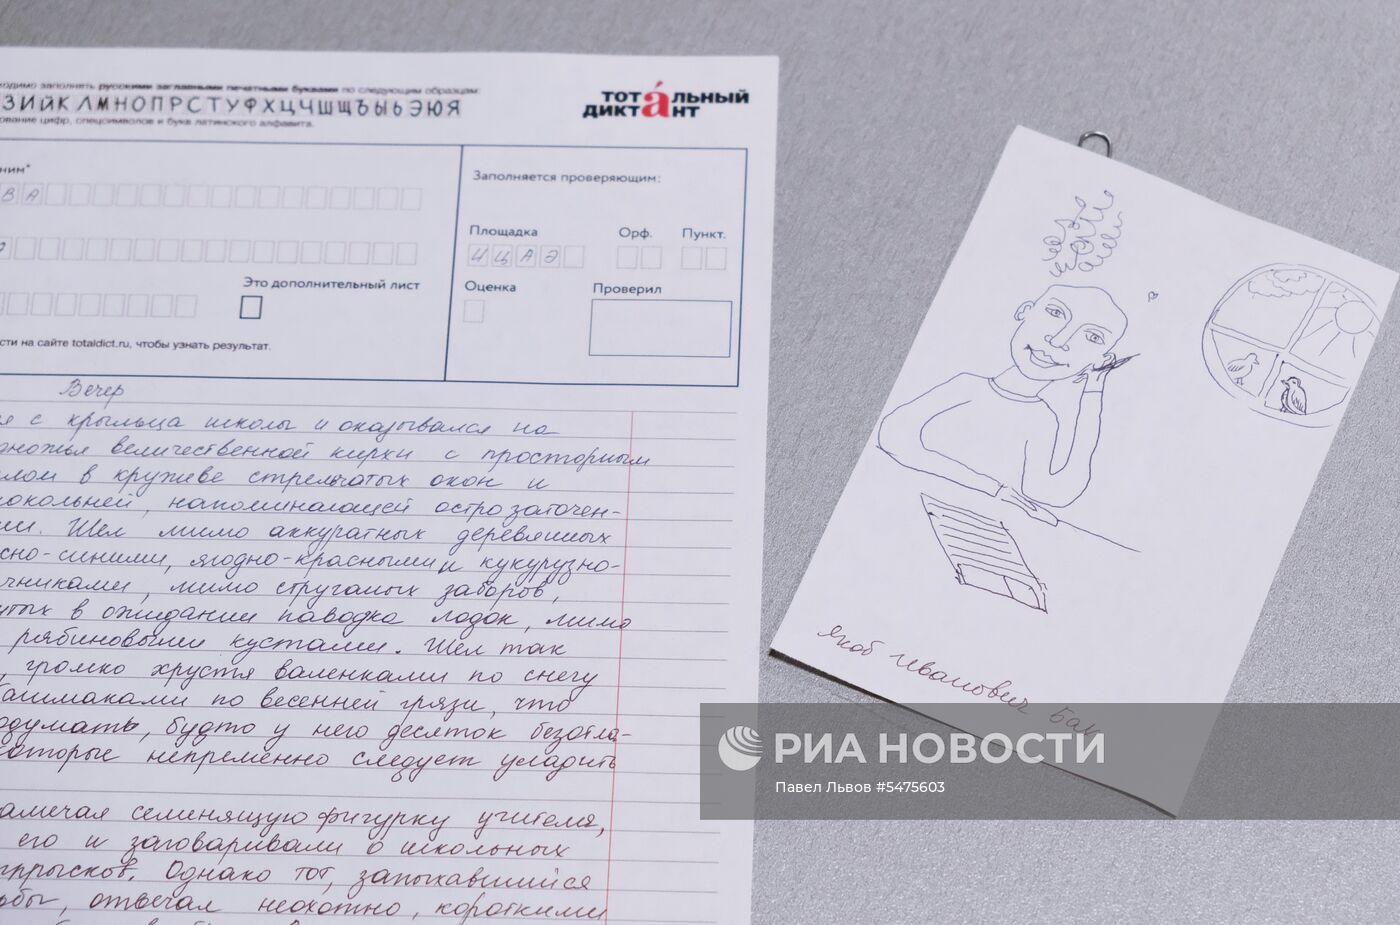 ходимо заполнять русскими заглавными печатными буквами по следующим образцам:
ЗИЙКЛМНОПРСТУФХЦЧШЩЪЫЬЭЮЯ
ование цифр, спецсимволов и букв латинского алфавита.
тотáльный
диктант
ним*
ВА
Заполняется проверяющим:
Площадка
Орф.
Пункт.
Это дополнительный лист
Оценка
Проверил
сти на сайте totaldict.ru, чтобы узнать результат.
Вечер
я с крыльца школы и оказывался на
дножья величественной кирхи с просторным
лом в кружеве стрельчатых окон и
локольней, напоминающей остро заточен-
Шел мимо аккуратных деревянных
сно-синими, ягодно-красными и кукурузно-
чниками, мимо струганых заборов,
утых в ожидании паводка лодок, мимо
рябиновыми кустами. Шел так
, громко хрустя валенками по снегу
башмаками по весенней грязи, что
одумать, будто у него десяток безотла-
которые непременно следует уладить
амечая семенящую фигурку учителя,
его и заговаривали о школьных
тпрысков. Однако тот, запыхавшийся
дьбы, отвечал неохотно, короткими
Якоб Иванович Бах
РИА НОВОСТИ
Павел Львов #5475603